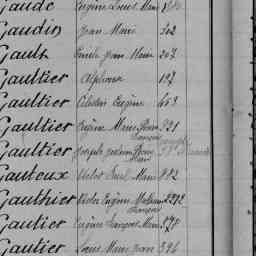 Gaude Eugène Louis Marie
Gaudin Jean Marie 302
Gault Emile Jean Marie 207
Gaultier Alphonse 197
Gaultier Célestin Eugène 453
Gaultier Eugène Marie Pierre 991
François
Gaultier Joseph Pierre
Marie
Gauteux Marie 812
Gauthier Victor Eugène 2292
François
Gautier Eugène François Marie 578
Gautier Louis Marie Jean 396